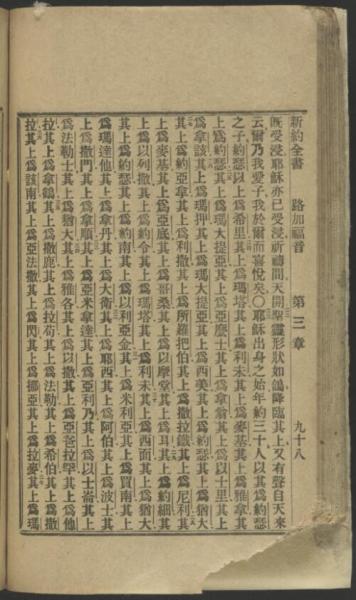 新約全書 路加福音 第三章 九十八
旣受浸耶穌亦已受浸祈禱間天開聖靈形狀如鴿降臨其上又有聲自天來
云爾乃我愛子我於爾而喜悅矣〇耶穌出身之始年約三十人以其爲約瑟
之子約瑟以上爲希里其上爲瑪塔其上爲利未其上爲麥基其上爲雅拿其
上爲約瑟其上爲瑪大提亞其上爲亞麽士其上爲拿翁其上爲以士里其上
爲拿該其上爲瑪押其上爲瑪大提亞其上爲西美其上爲約瑟其上爲猶大
其上爲約亞拿其上爲利撒其上爲所羅把伯其上爲撒拉鐵其上爲尼利其
上爲麥基其上爲亞底其上爲哥桑其上爲以摩堂其上爲耳其上爲約細其
上爲以列撒其上爲約令其上爲瑪塔其上爲利未其上爲西面其上爲猶大
其上爲約瑟其上爲約南其上爲以利亞金其上爲米利亞其上爲買南其上
爲瑪達他其上爲拿丹其上爲大衛其上爲耶西其上爲阿伯其上爲波士其
上爲撒門其上爲拿順其上爲亞米拿達其上爲亞利乃其上爲以士崙其上
爲法勒士其上爲猶大其上爲雅各其上爲以撒其上爲亞伯拉罕其上爲他
拉其上爲拿鶴其上爲撒鹿其上爲拉苟其上爲法勒其上爲希伯其上爲撒
拉其上爲該南其上爲亞法撒其上爲閃其上爲挪亞其上爲拉麥其上爲瑪